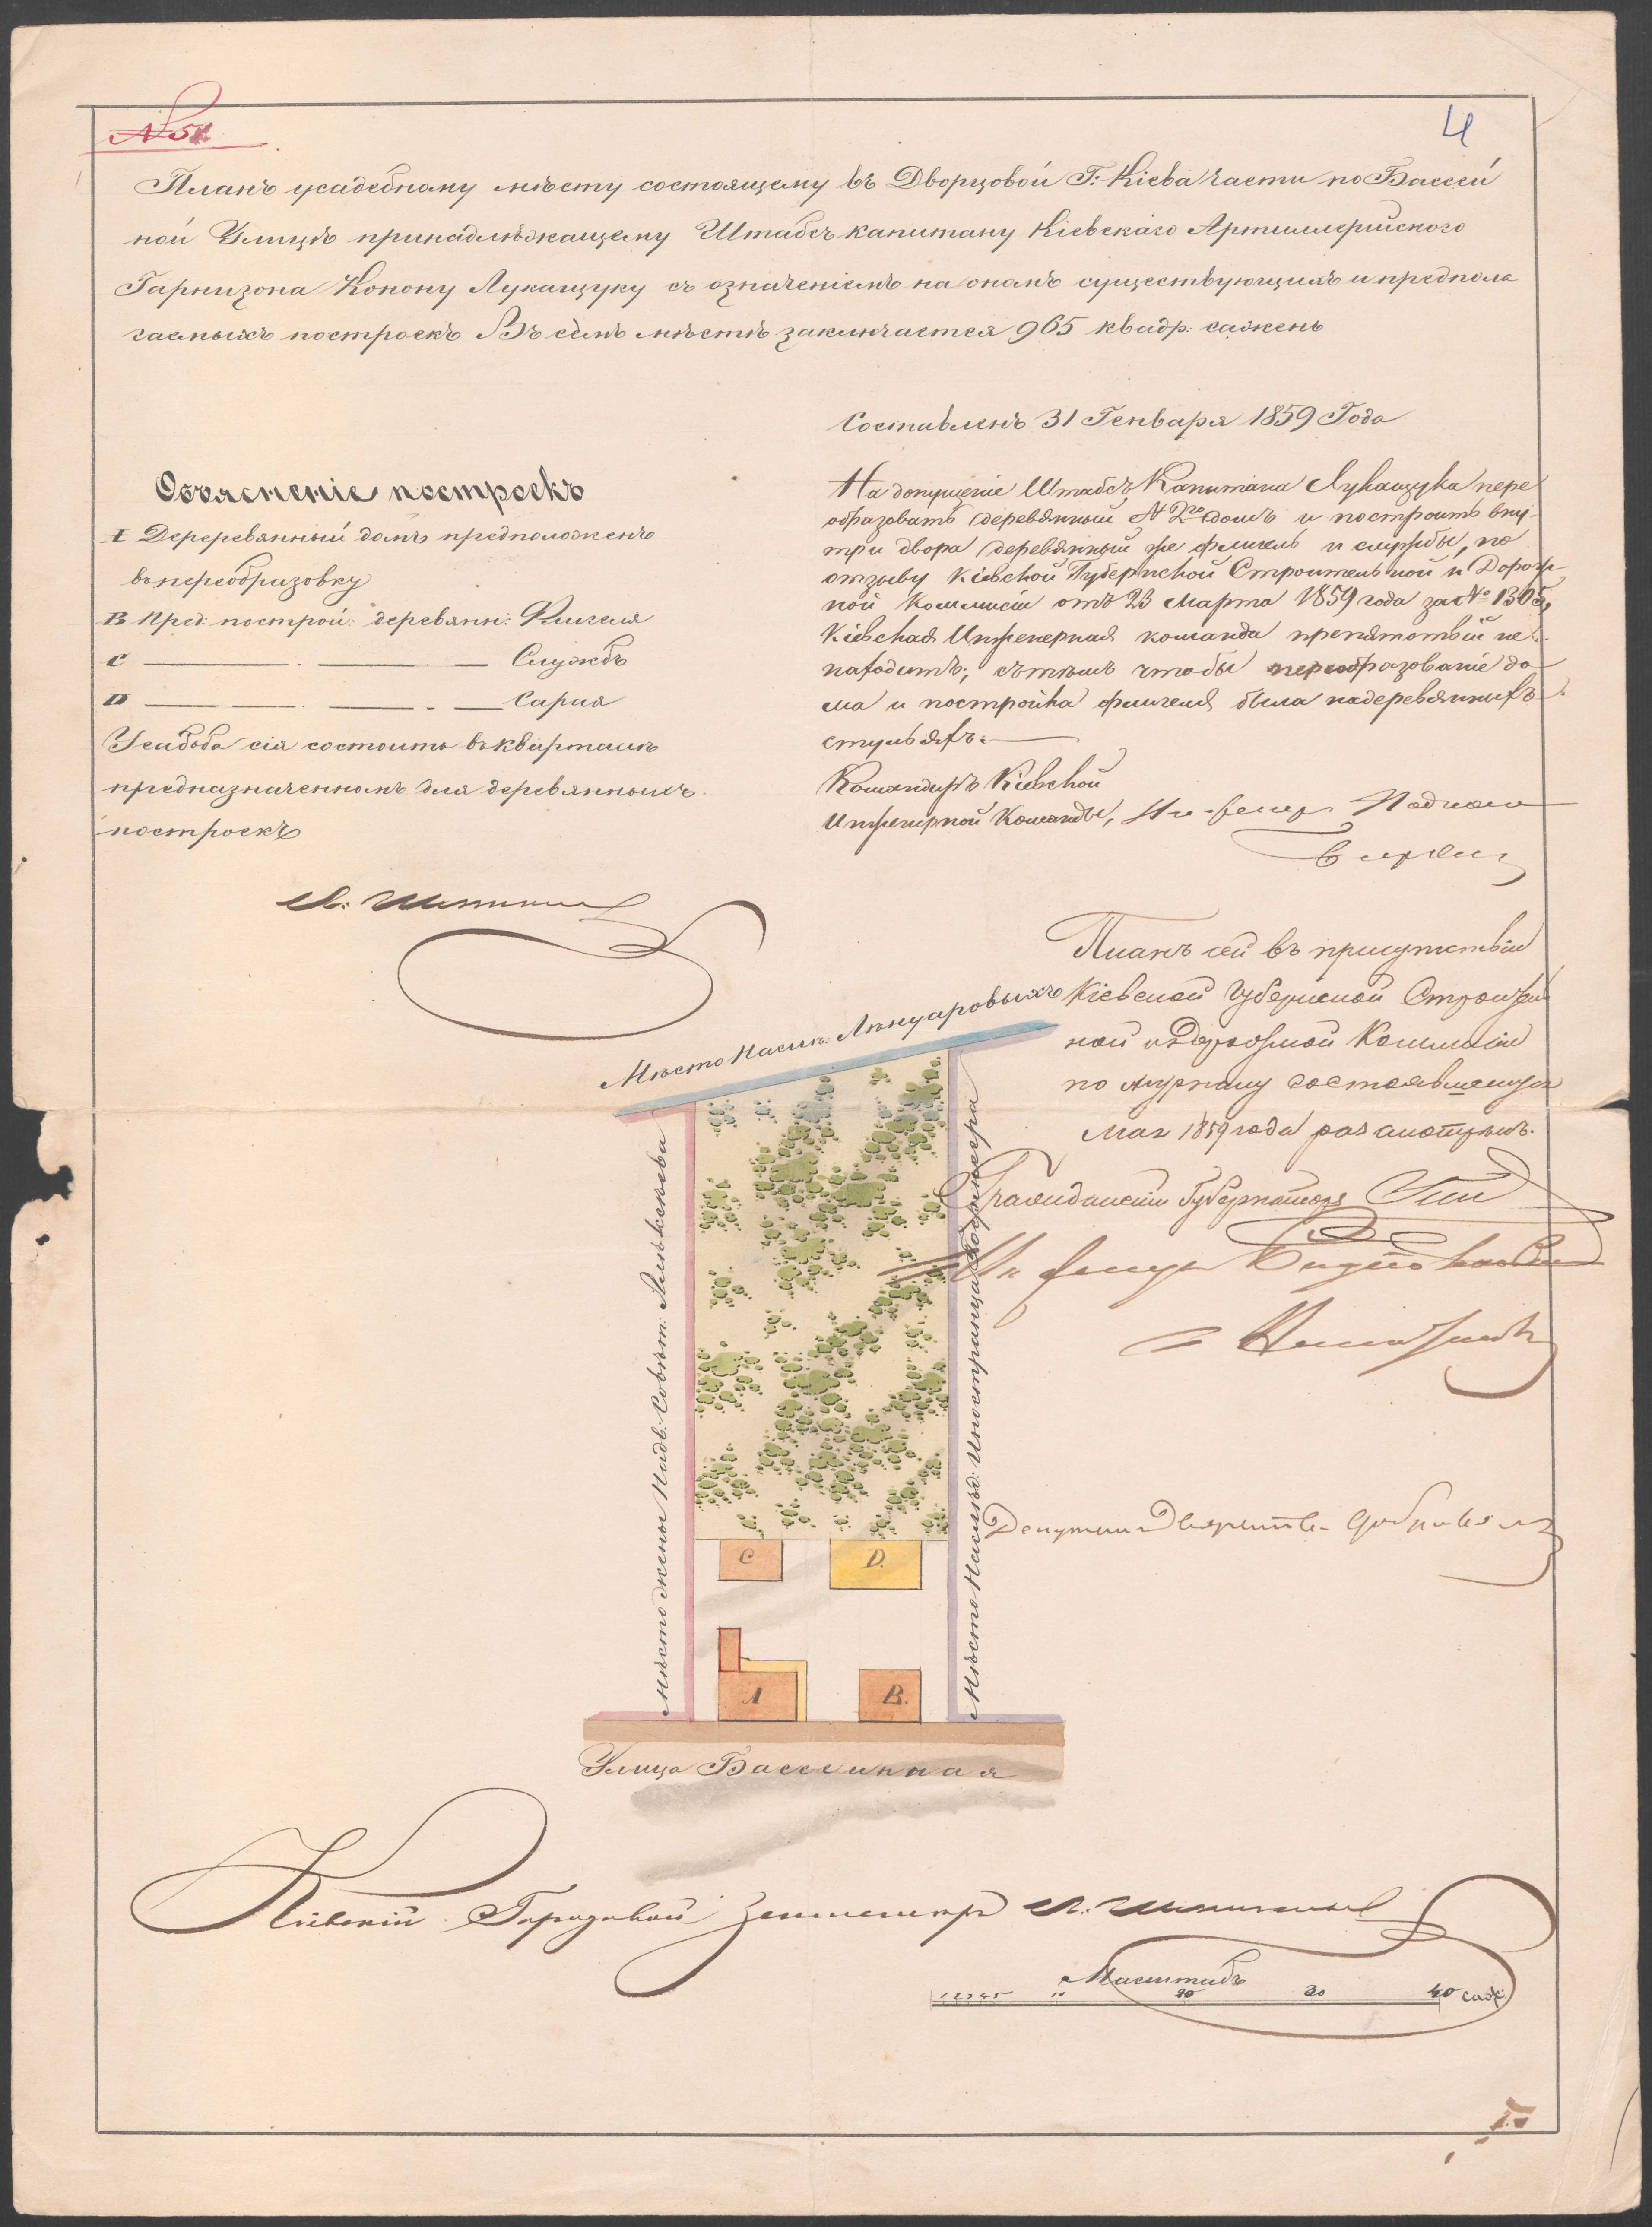 № 51
4
Планъ усадебному мѣсту состоящему въ Дворцовой Г: Кіева части по Бассей
ной Улицѣ принадлѣжащему Штабсъ капитану Кіевскаго Артиллерійского
Гарнизона Конону Лукащуку съ означеніемъ на ономъ существующихъ и предпола
гаемыхъ построекъ Въ сѣмъ мѣстѣ заключается 965 квадр: сажень
Составленъ 31 Генваря 1859 Года
Объясненіе построекъ
Дереревянный домъ предположенъ
въ переобразовку
B Пред: построй: деревянн: Флигеля
C Службъ
D Сарая
Усадьба сія состоитъ въ кварталѣ
предназначенномъ для деревянныхъ
построекъ
На допущеніе Штабсъ Капитана Лукащука пере
образовать деревянный № 2го домъ и построить вну-
три двора деревянный же флигель и службы, по
отзыву Кіевской Губернской Строительной и Дорож
ной Коммисіи отъ 23 Марта 1859 года за № 1305,
Кіевская Инженерная команда препятствій не
находитъ; съ тѣмъ чтобы переобразованіе до
ма и постройка флигеля была на деревянныхъ
стульяхъ.
Командиръ Кіевской
Инженерной Команды, Инженер
Планъ сей въ присутствіи
Кіевской Губернской Строитель
ной и Дорожной Коммисіи
по журналу состоявшемуся
Мая 1859 года разсмотрѣнъ.
Гражданскій Губернаторъ
Мѣсто Наслѣ:
Мѣсто жены Надв: Совѣт:
Мѣсто Наслѣд: Иностранца
Депутатъ Дворянства
C
D.
A
B.
Улица Бассейнная
Кіевскій Городовой Землемѣръ
Масштабъ
1 2 3 4 5 10 20 30 40 саж: